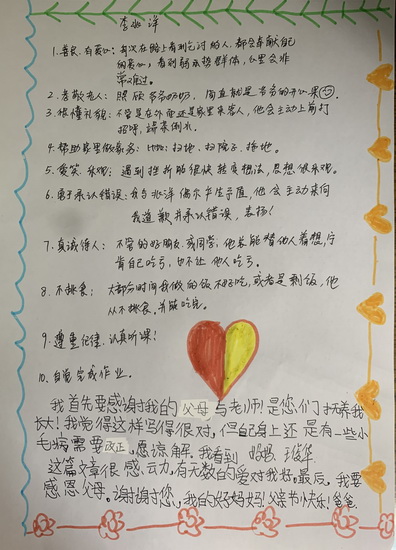 李兆洋
1.善良.有爱心:每次在路上看到乞讨的人.都会奉献自己
的爱心,看到弱小的群体,心里会非
常难过。
2.孝敬老人:照顾爷爷奶奶,简直就是爷爷的开心果
3.很懂礼貌:不管是在外面还是家里来客人,他会主动上前打
招呼,端茶倒水.
4.帮助家里做家务:比如:扫地、扫院子、拖地。
5.爱笑.乐观:遇到挫折能很快转变想法,思想很乐观。
6.勇于承认错误:我与兆洋偶尔产生矛盾,他会主动来向
我道歉并承认错误,表扬!
7.真诚待人:不管的好朋友.或同学,他总能替他人着想,宁
肯自己吃亏,也不让他人吃亏。
8.不挑食:大部分时间我做的饭不好吃,或者是剩饭,他
从不挑食.并能吃完。
9.遵重纪律.认真听课!
10.自觉完成作业.
我首先要感谢我的父母与老师!是您们抚养我
长大!我觉得这样写得很对,但自身上还是有一些小
毛病需要改正,愿谅解.我看到妈妈
这篇文章很感动,有无数的爱对我好.最后,我要
感恩父母。谢谢您,我的好妈妈!父亲节快乐!爸爸